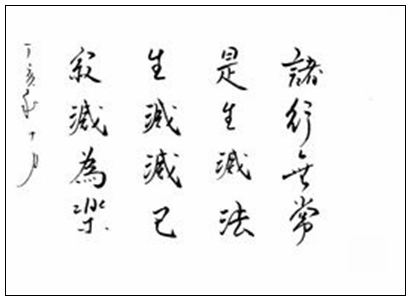 諸行無常
是生滅法
生滅滅已
寂滅為樂
丁亥十月